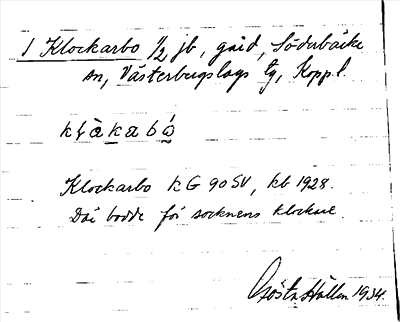 1 Klockarbo 1/2 jb, gård, Söderbärke
sn, Västerbergslags tg, Kopp. l.
Klockarbo k G 90 SV, kb 1928.
Där bodde för socknens klockare.
Gösta Hallen 1934.